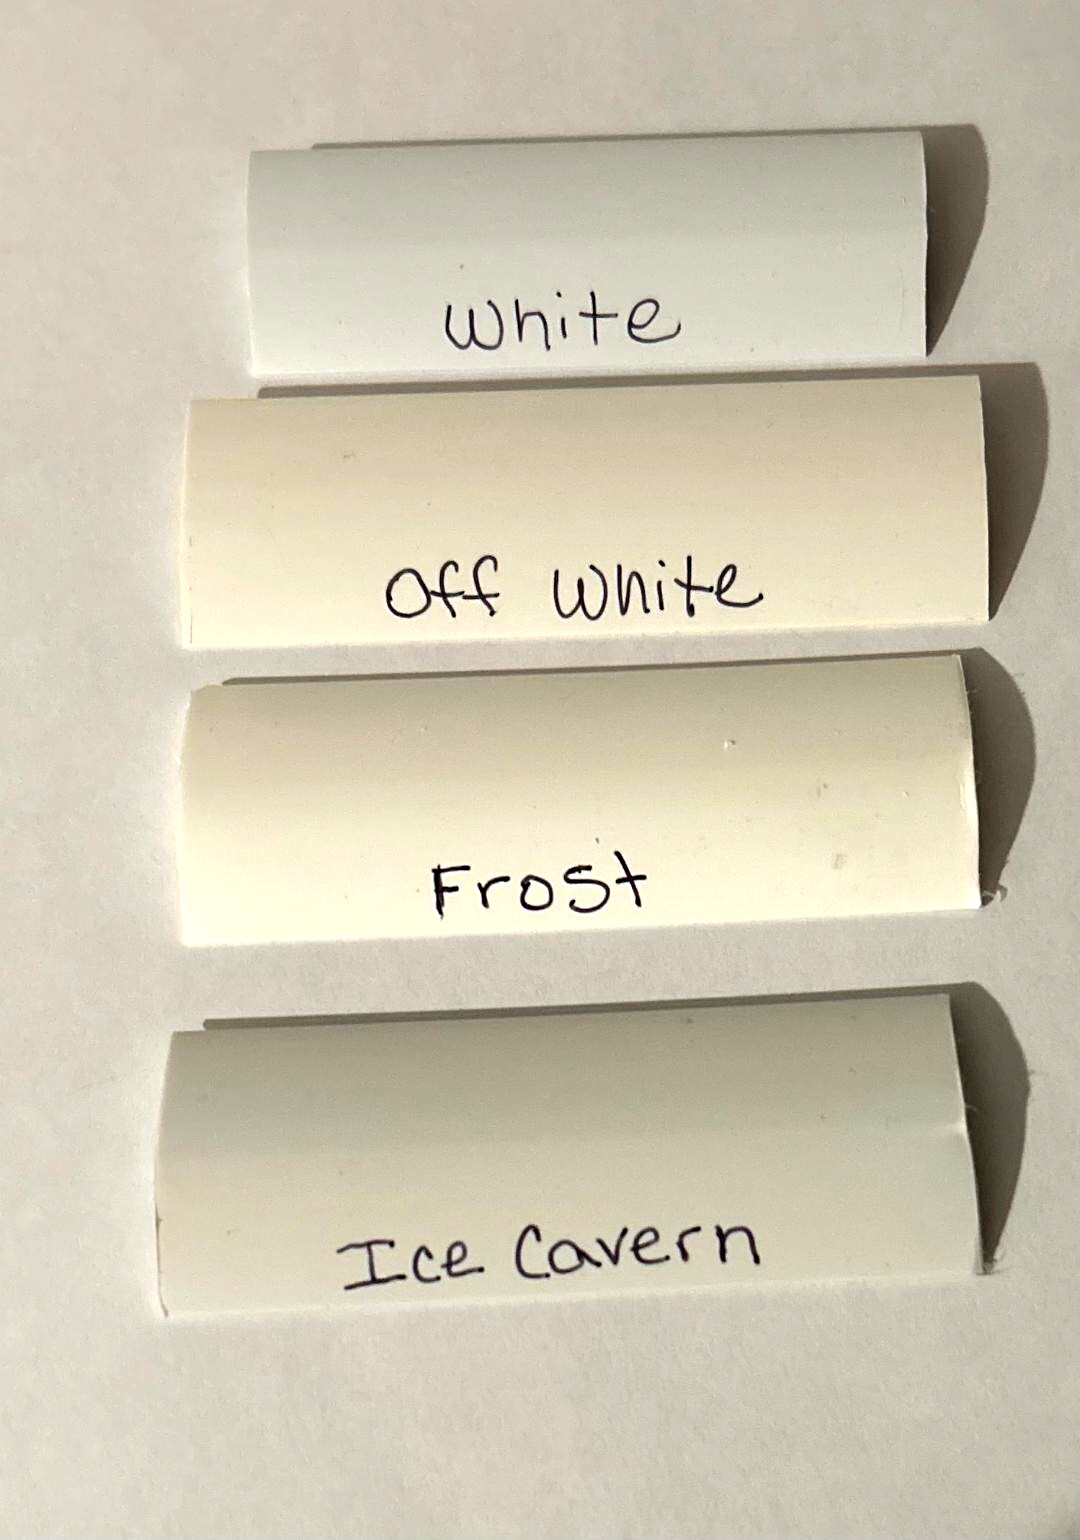 White
Off White
Frost
Ice Cavern